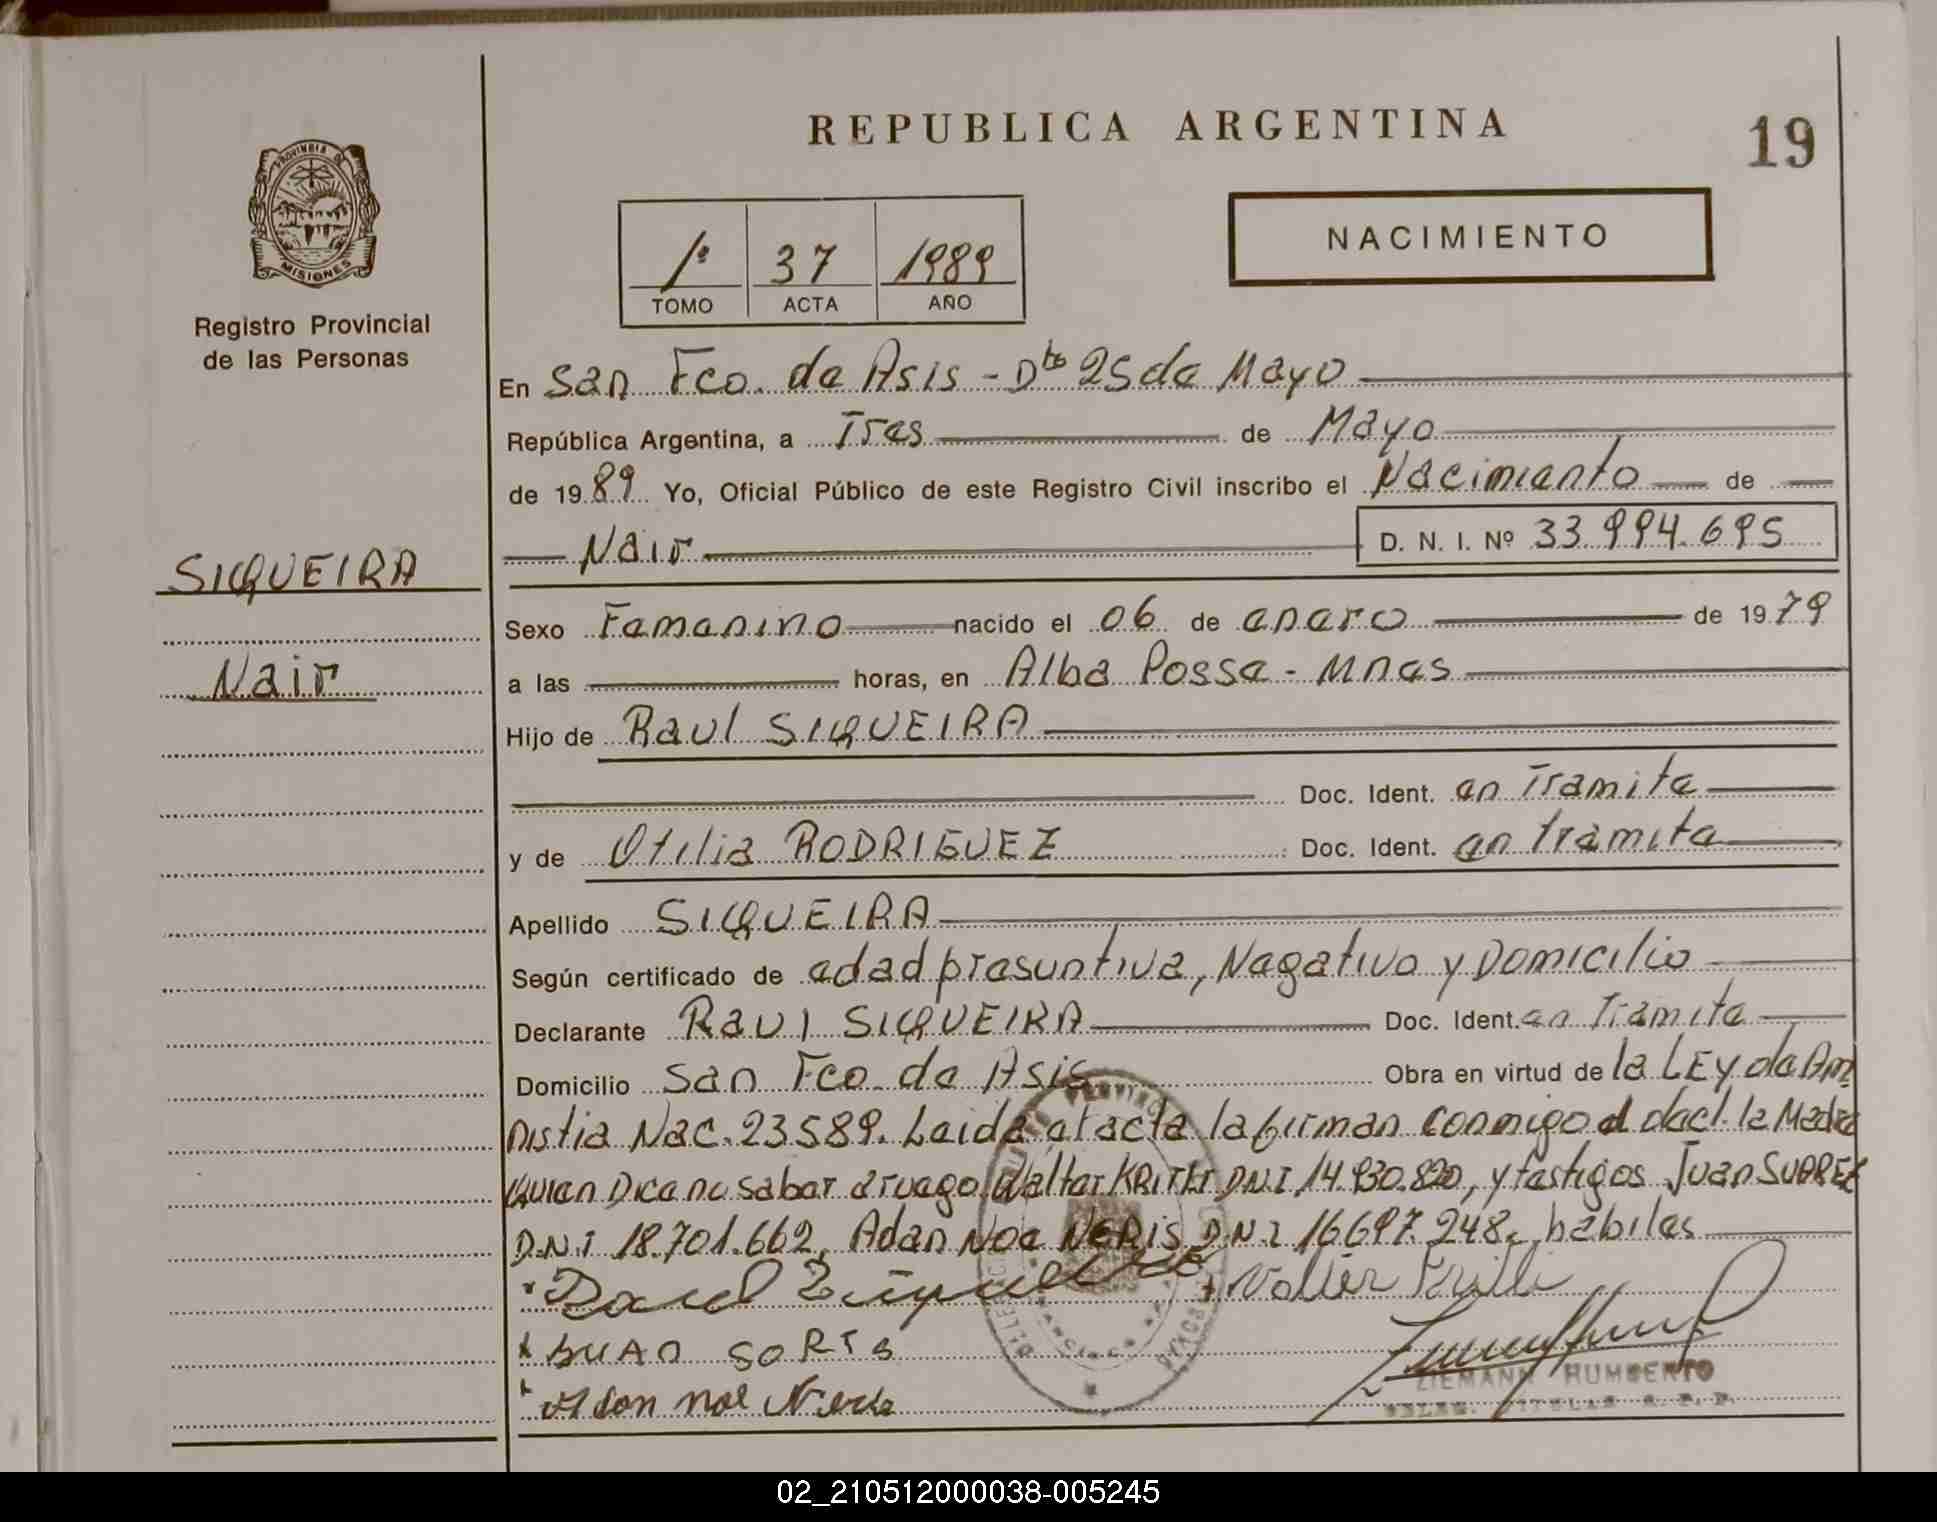 REPUBLICA ARGENTINA
19
PROVINCIA DE
MISIONES
Registro Provincial
de las Personas
1º 37 1989
TOMO ACTA AÑO
NACIMIENTO
En San Fco. de Asis - Dto 25 de Mayo
República Argentina, a Tres de Mayo
de 1989 Yo, Oficial Público de este Registro Civil inscribo el Nacimiento de
Nair D. N. I. Nº 33.994.695
SIQUEIRA
Nair
Sexo Femenino nacido el 06 de enero de 1979
a las horas, en Alba Posse - Mnes
Hijo de Raul SIQUEIRA
Doc. Ident. en Tramite
y de Otilia RODRIGUEZ Doc. Ident. en tramite
Apellido SIQUEIRA
Según certificado de edad presuntiva, Negativo y Domicilio
Declarante Raul SIQUEIRA Doc. Ident. en Tramite
Domicilio San Fco. de Asis Obra en virtud de la LEY de Am
nistia Nac. 23589. Leida el acta la firman conmigo el decl. la Madre
quien Dice no saber a ruego Walter D.N.I. 14.930.820, y testigos Juan SUAREZ
D.N.I 18.701.662, Adan Noe NERIS D.N.I 16.697.248, habiles
Walter
JUAN
Adan noe
ZIEMANN HUMBERTO
02_210512000038-005245